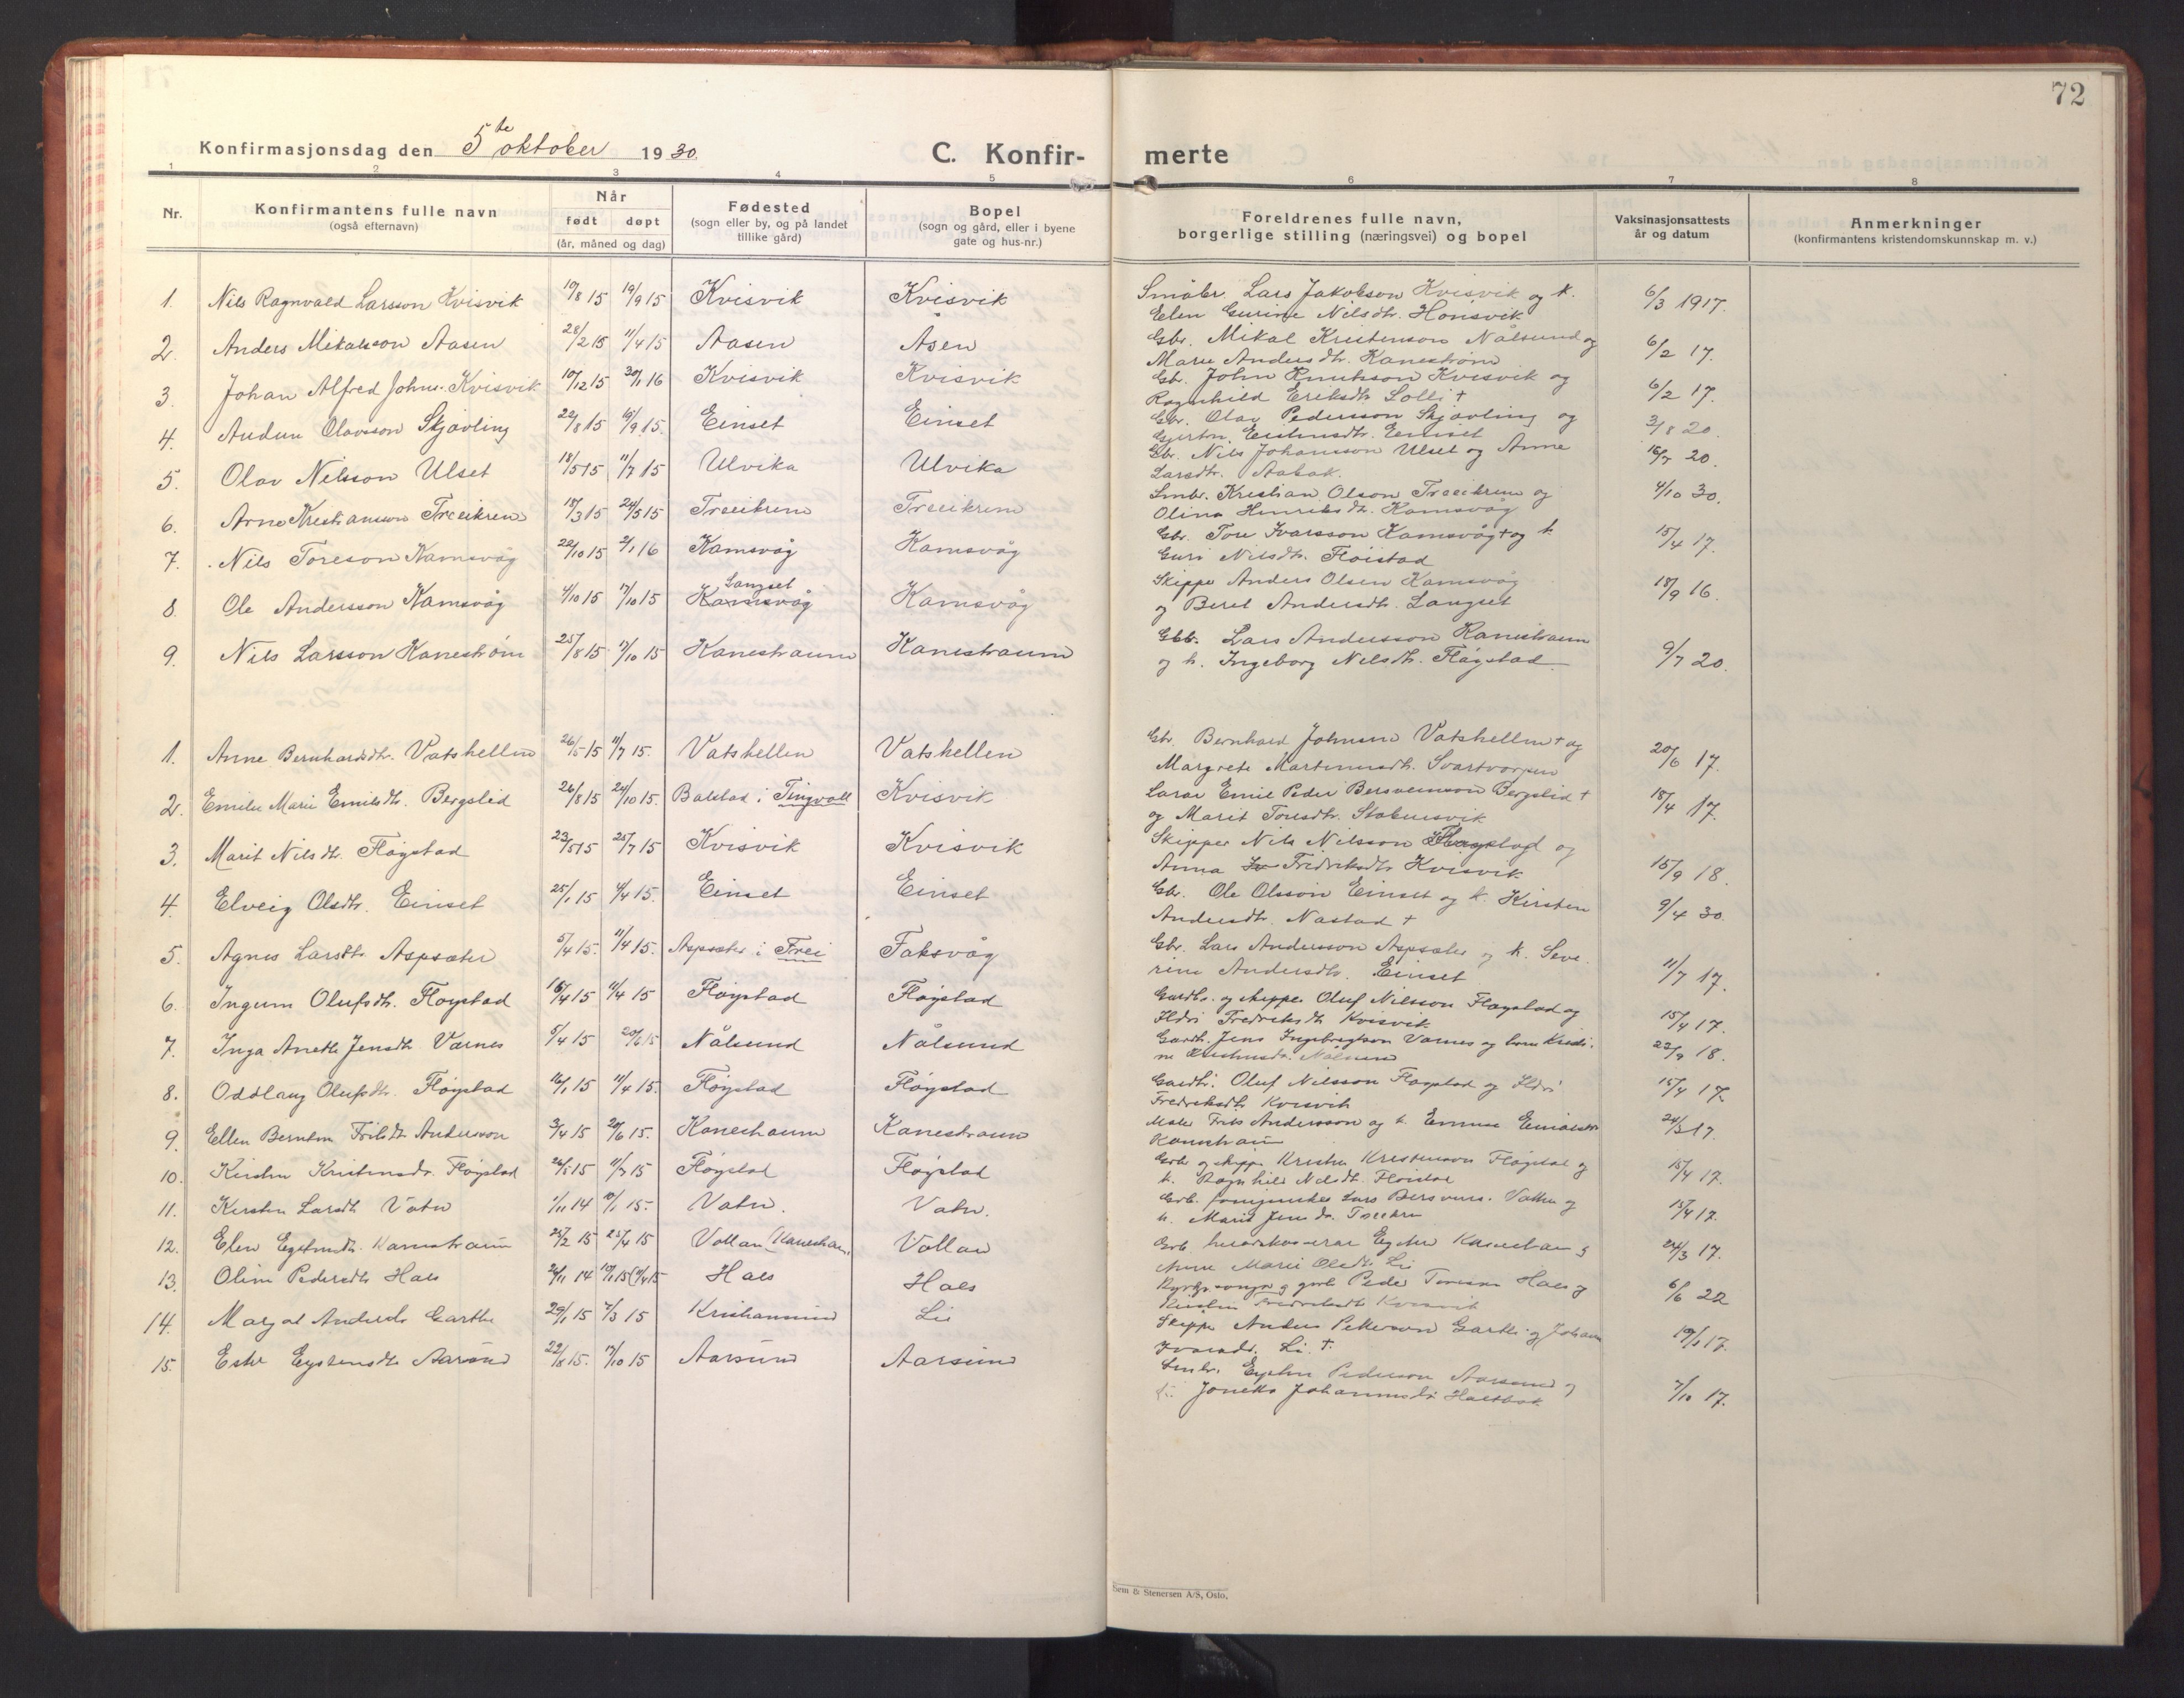 72
Konfirmasjonsdag den 5te oktober 1930.
C. Konfir- merte
1 2 3 4 5 6 7 8
Nr.
Konfirmantens fulle navn
(også efternavn)
Når
født døpt
(år, måned og dag)
Fødested
(sogn eller by, og på landet
tillike gård)
Bopel
(sogn og gård, eller i byene
gate og hus-nr.)
Foreldrenes fulle navn,
borgerlige stilling (næringsvei) og bopel
Vaksinasjonsattests
år og datum
Anmerkninger
(konfirmantens kristendomskunnskap m. v.)
1. Nils Ragnvald Larsson Kvisvik 10/8 15 19/9 15 Kvisvik Kvisvik Småbr. Lars Jakobson Kvisvik og k. 6/3 1917.
Elen Gurine Nilsdtr. Honsvik
2. Anders Mikalsson Aasen 28/2 15 11/4 15 Aasen Åsen Gbr. Mikal Kristenson Nålsund og 6/2 17.
Marie Andersdtr. Kanestrøm
3. Johan Alfred Johns. Kvisvik 10/12 15 30/1 16 Kvisvik Kvisvik Gbr. John Knutsson Kvisvik og 6/2 17.
Ragnhild Eriksdtr. Solli †
4. Audun Olavsson Skjøvling 22/8 15 19/9 15. Einset Einset Gbr. Olav Pedersson Skjøvling og 3/8 20.
Einset
5. Olav Nilsson Ulset 18/5 15 11/7 15 Ulvika Ulvika Gbr. Nils Johansson Ulset og Anne 16/7 20.
Larsdtr. Aabak.
6. Arne Kristiansson Treeikrem 18/3 15 24/5 15 Treeikrem Treeikrem Smbr. Kristian Olson Treeikrem og 4/10 30.
Olina Henriksdtr. Kamsvåg
7. Nils Toreson Kamsvåg 22/10 15 2/1 16 Kamsvåg Kamsvåg Gbr. Tore Ivarsson Kamsvåg † og k. 15/4 17.
Guri Nilsdtr. Fløistad
8. Ole Andersson Kamsvåg 4/10 15 17/10 15 Langset Kamsvåg Kamsvåg Skipper Anders Olsen Kamsvåg 18/9 16.
og Beret Andersdtr. Langset
9. Nils Larsson Kanestrøm 25/8 15 17/10 15 Kanestraum Kanestraum Gbr. Lars Andersson Kanestraum 9/7 20.
og k. Ingeborg Nilsdtr. Fløystad
1. Anne Bernhardsdtr. Vatshellen 26/5 15 11/7 15. Vatshellen Vatshellen Gbr. Bernhard Johnsen Vatshellen † og 20/6 17.
Margrete Martinusdtr. Svartvorpen
2. Emilie Marie Emilsdtr. Bergslid 26/8 15 24/10 15. Balstad i Tingvoll Kvisvik Lærar Emil Peder Bersveinson Bergslid † 18/4 17.
og Marit Toresdtr. Stokensvik
3. Marit Nilsdtr. Fløystad 23/5 15 25/7 15 Kvisvik Kvisvik Skipper Nils Nilsson Fløystad og 15/9 18.
Anna Fredriksdtr. Kvisvik
4. Elveig Olsdtr. Einset 25/1 15 4/4 15. Einset Einset Gbr. Ole Olsson Einset og k. Kirsten 9/4 30.
Andersdtr. Nastad †
5. Agnes Larsdtr. Aspsæter 5/4 15. 11/4 15. Aspsæter i Frei Faksvåg Gbr. Lars Andersson Aspsæter og k. Seve- 11/7 17.
rine Andersdtr. Einset
6. Ingunn Olufsdtr. Fløystad 16/1 15 11/4 15 Fløystad Fløystad Gardbr. og skipper Oluf Nilsson Fløystad og 15/4 17.
Ildri Fredriksdtr. Kvisvik
7. Inga Anette Jensdtr. Varnes 5/4 15 20/6 15 Nålsund Nålsund Gardbr. Jens Ingebrigtson Varnes og kone Kristi- 22/9 18.
ne Kristensdtr. Nålsund
8. Oddlaug Olufsdtr. Fløystad 16/1 15 11/4 15. Fløystad Fløystad Gardbr. Oluf Nilsson Fløystad og Ildri 15/4 17.
Fredriksdtr. Kvisvik
9. Ellen Frilsdtr. Andersson 3/4 15 20/6 15. Kanestraum Kanestraum Maler Frits Andersson og k. 24/3 17.
Kanestraum
10. Kirsten Kristensdtr. Fløystad 26/5 15 11/7 15 Fløystad Fløystad Gbr. og skipper Kristen Kristenson Fløystad og 15/4 17.
k. Ragnhild Nilsdtr. Fløistad
11. Kirsten Larsdtr. Vatn 1/11 14 10/1 15. Vatn. Vatn. Grb. Lars 15/4 17.
k. Marit Jensdtr. Treeikrem
12. Elen Eystensdtr. Kanestraum 25/2 15 25/4 15 Vollan (Kanestraum) Vollan Grb. Eysten Kanestraum og 24/3 17.
Anne Marie Olsdtr. Li
13. Oline Pedersdtr. Hals 26/11 14 10/1 15 (11/4 15 Hals Hals Kyrkjesongar og grb. Peder Toresen Hals og 6/6 22
Kirsten Fredriksdtr. Kvisvik
14. Margot Andersdtr. Garthe 29/1 15 7/3 15 Kristiansund Li Skipper Anders Petterson Garthe og Johanne 19/1 17.
Ivarsdtr. Li. †
15. Ester Eystensdtr. Aarsund 22/8 15. 17/10 15 Aarsund Aarsund Smbr. Eysten Pederson Aarsund og 7/10 17.
k. Jonetta Johannesdtr. Holtbak
Sem & Stenersen A/S, Oslo.